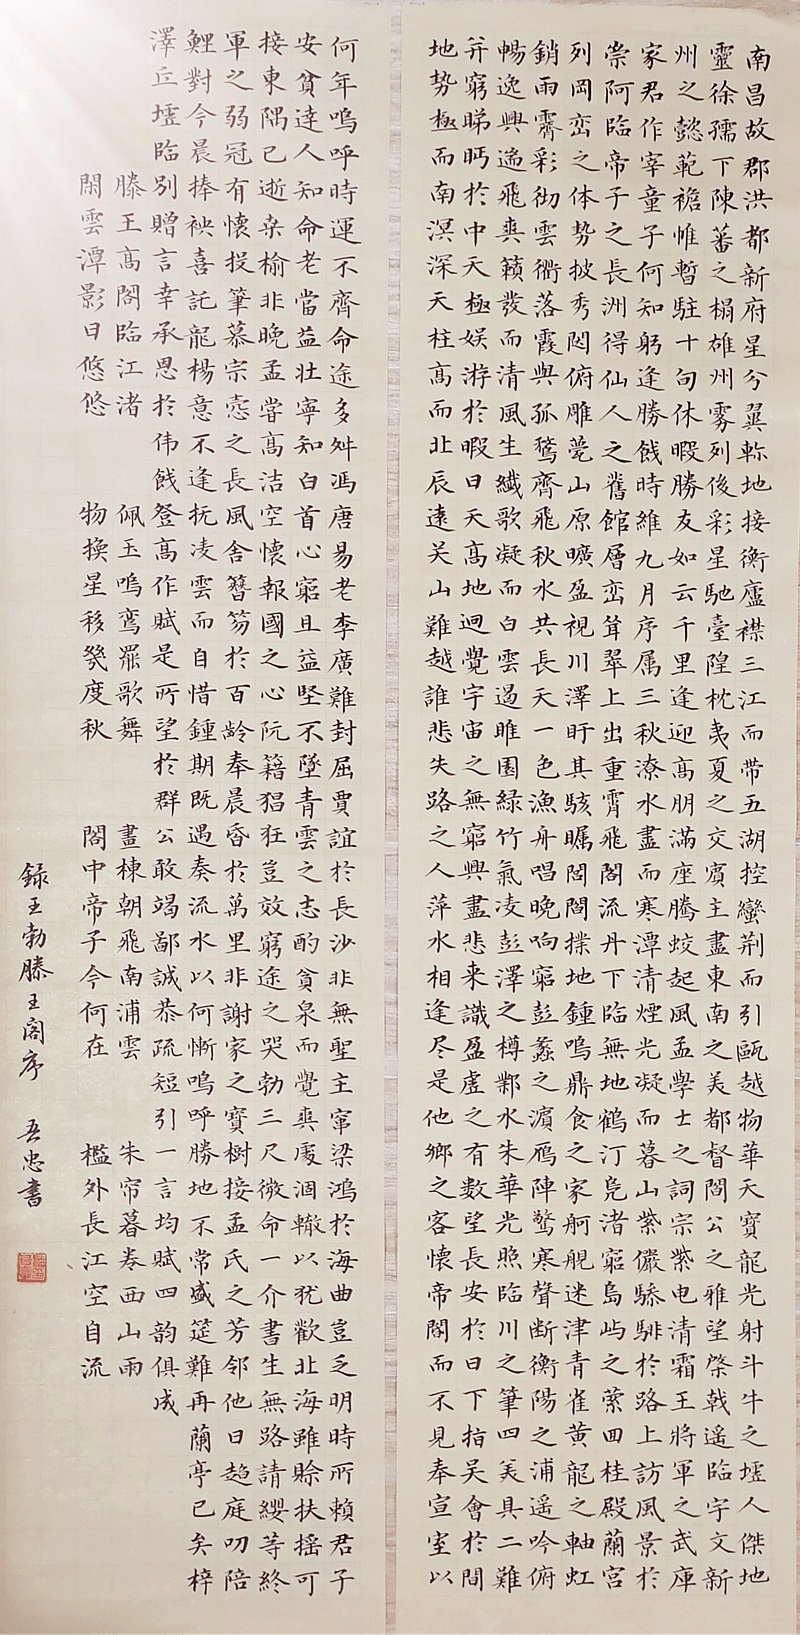 南昌故郡洪都新府星分翼軫地接衡廬襟三江而带五湖控蠻荆而引甌越物華天寶龍光射斗牛之墟人傑地
靈徐孺下陳蕃之榻雄州雾列後彩星馳臺隍枕夷夏之交賓主盡東南之美都督閻公之雅望棨戟遥臨宇文新
州之懿範襜帷暫駐十旬休暇勝友如云千里逢迎高朋滿座騰蛟起風孟學士之詞宗紫电清霜王將軍之武庫
家君作宰童子何知躬逢勝餞時維九月序属三秋潦水盡而寒潭清煙光凝而暮山紫儼驂騑於路上訪風景於
崇阿臨帝子之長洲得仙人之舊館層峦耸翠上出重霄飛閣流丹下臨無地鶴汀凫渚窮島屿之萦回桂殿蘭宫
列岡峦之体势披秀闼俯雕甍山原曠盈視川澤盱其駭瞩閭閻撲地鍾鳴鼎食之家舸艦迷津青雀黄龍之軸虹
銷雨霽彩彻雲衢落霞與孤鶩齊飛秋水共長天一色漁舟唱晚响窮彭蠡之濱雁陣驚寒聲断衡陽之浦遥吟俯
暢逸興遄飛爽籟發而清風生纖歌凝而白雲遏睢園緑竹氣凌彭澤之樽鄴水朱華光照臨川之筆四美具二難
并窮睇眄於中天極娱游於暇日天高地迥覺宇宙之無窮興盡悲来識盈虚之有数望長安於日下指吴會於間
地势極而南溟深天柱高而北辰遠关山難越誰悲失路之人萍水相逢尽是他鄉之客懷帝閽而不見奉宣室以
何年嗚呼時運不齊命途多舛馮唐易老李廣難封屈賈誼於長沙非無聖主竄梁鴻於海曲豈乏明時所賴君子
安貧達人知命老當益壮寧知白首心窮且益堅不墜青雲之志酌貪泉而覺爽處涸轍以犹歡北海雖賒扶摇可
接東隅已逝桑榆非晚孟嘗高洁空懷報國之心阮籍猖狂豈效窮途之哭勃三尺微命一介書生無路請纓等終
軍之弱冠有懷投筆慕宗悫之長風舍簪笏於百龄奉晨昏於萬里非謝家之寶樹接孟氏之芳邻他日趋庭叨陪
鯉對今晨捧袂喜託龍楊意不逢抚凌雲而自惜鍾期既遇奏流水以何慚嗚呼勝地不常盛筵難再蘭亭已矣梓
澤丘墟臨别贈言幸承恩於伟餞登高作賦是所望於群公敢竭鄙誠恭疏短引一言均賦四韵俱成
滕王高閣臨江渚 佩玉鳴鸾罷歌舞 畫棟朝飛南浦雲 朱帘暮卷西山雨
閑雲潭影日悠悠 物换星移幾度秋 閣中帝子今何在 檻外長江空自流
録王勃滕王阁序 吾忠書